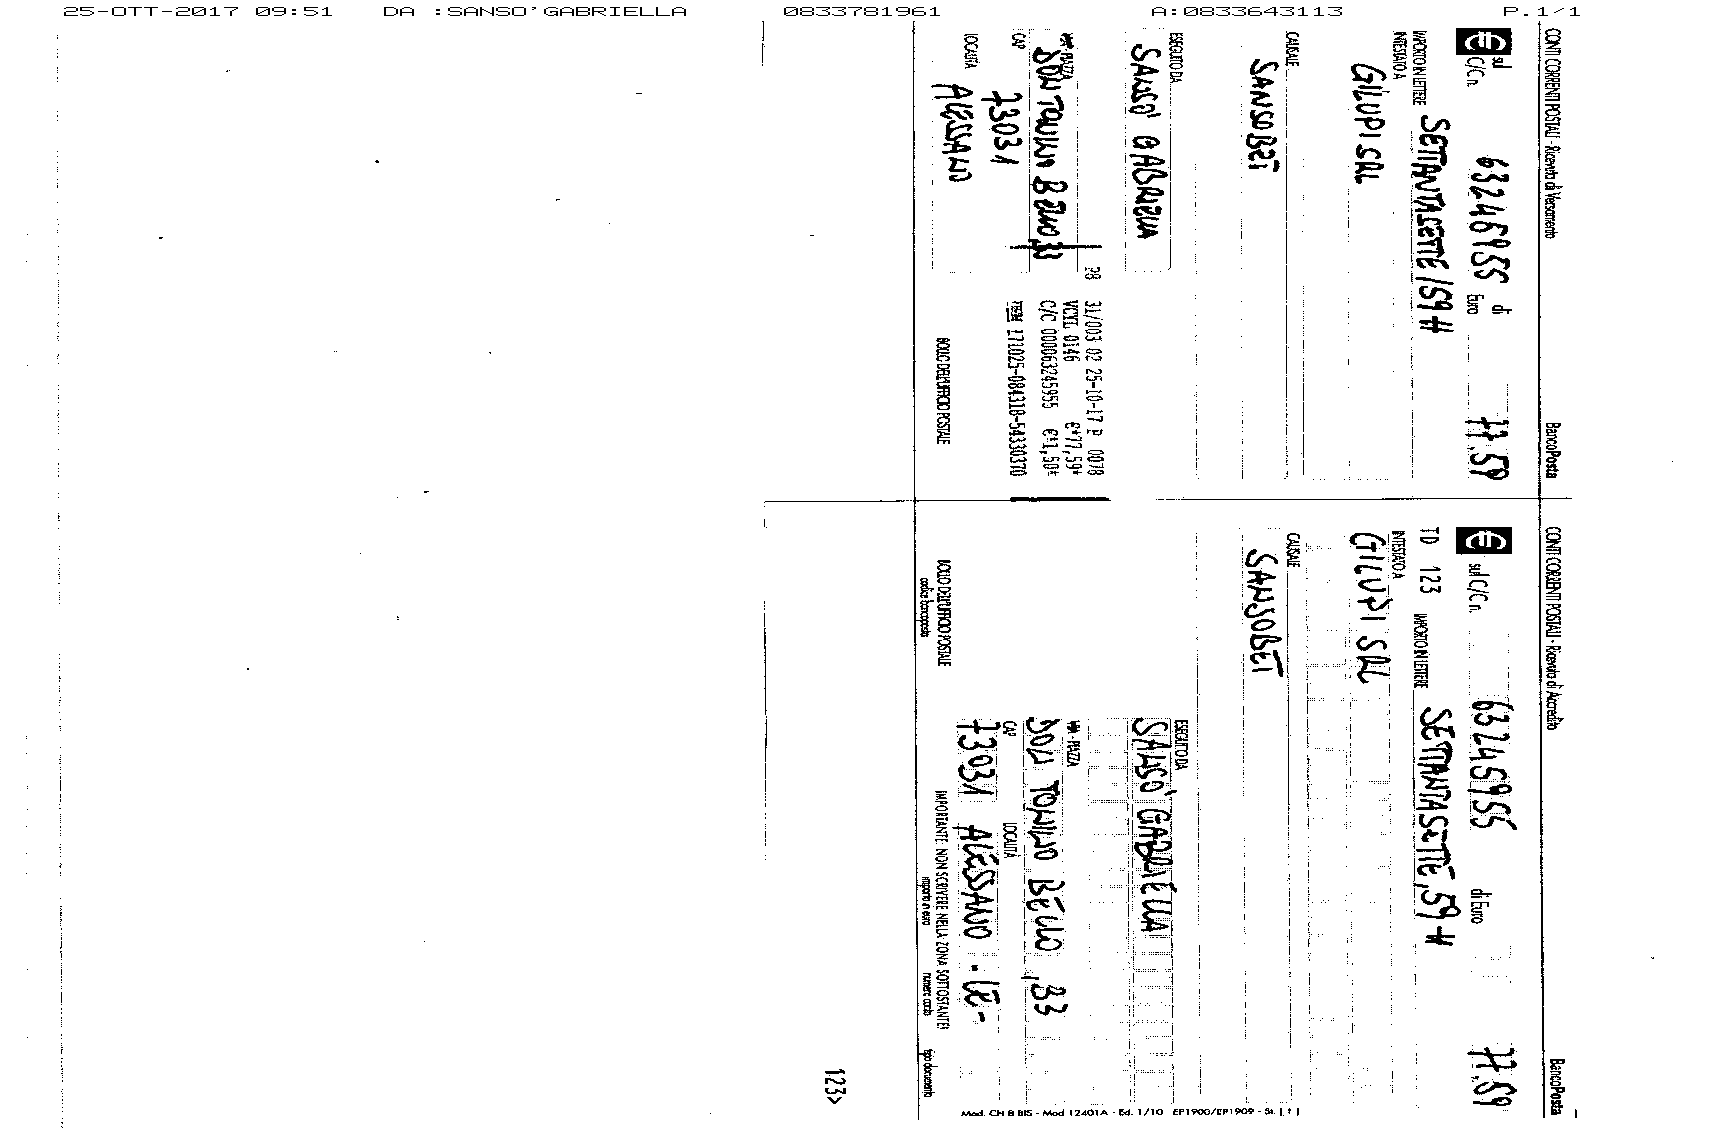 25-OTT-2017 09:51 DA :SANSO'GABRIELLA 0833781961 A:0833643113 P.1/1
CONTI CORRENTI POSTALI - Ricevuta di Versamento BancoPosta
€ sul C/C n. 63245955 di Euro 77,59
IMPORTO IN LETTERE SETTANTASETTE/59#
INTESTATO A
GILUPI SRL
CAUSALE
SANSOBET
ESEGUITO DA
SANSO' GABRIELLA
VIA - PIAZZA
DON TONINO BELLO 33
CAP
73031
LOCALITÀ
ALESSANO
28 31/003 02 25-10-17 P 0078
VCYL 0146 €*77,59*
C/C 000063245955 €*1,50*
171025-084318-54330370
BOLLO DELL'UFFICIO POSTALE
CONTI CORRENTI POSTALI - Ricevuta di Accredito BancoPosta
€ sul C/C n. 63245955 di Euro 77,59
TD 123 IMPORTO IN LETTERE SETTANTASETTE,59#
INTESTATO A
GILUPI SRL
CAUSALE
SANSOBET
ESEGUITO DA
SANSO' GABRIELLA
VIA - PIAZZA
DON TONINO BELLO ,33
CAP LOCALITÀ
73031 ALESSANO - LE -
BOLLO DELL'UFFICIO POSTALE
codice bancoposta
IMPORTANTE: NON SCRIVERE NELLA ZONA SOTTOSTANTE!
importo in euro numero conto tipo documento
123>
Mod. CH 8 BIS - Mod 12401A - Ed. 1/10 EP1900/EP1909 - St. [ 1 ]